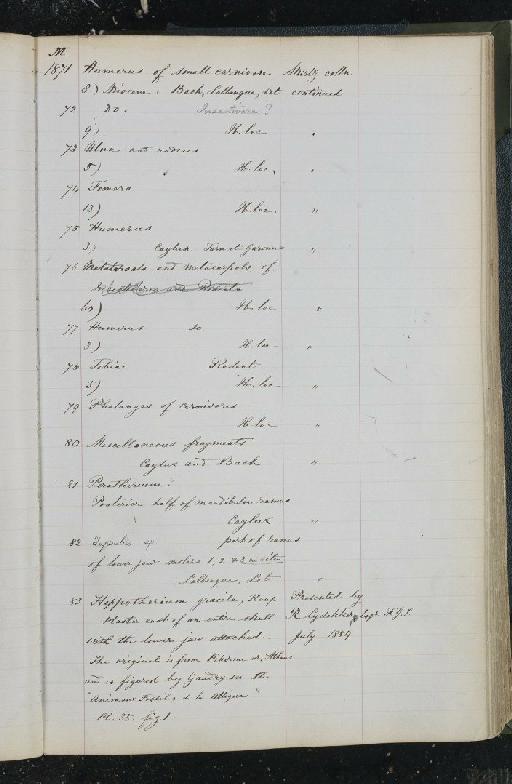 M
1871 Humerus of small carnivora Study colln
8) Miocene: Bach, Lalbenque, Lot continued
72 Do. Insectivore?
9) H. loc "
73 Ulna and radius
5) H. loc. "
74 Femora
13) H. loc. "
75 Humerus
3) Caylux Tarn et Garonne "
76 Metatarsals and metacarpals of
H. loc "
77 Humerus do
2) H. loc "
78 Tibia Rodent
5) H. loc "
79 Phalanges of carnivores
H. loc "
80 Miscellaneous fragments
Caylux and Bach "
81 Peratherium?
Posterior half of mandibular ramus
Caylux "
82 part of ramus
of lower jaw molars 1, 2 & 3 in situ
Lalbenque, Lot "
83 Hippotherium gracile, Kaup Presented by
Plaster cast of an entire skull R Lydekker Esqr F.G.S.
with the lower jaw attached. July 1884
The original is from Pikermi nr. Athens
and is figured by Gaudry in the
"Animaux Fossiles de le Attique"
Pl. 35 fig 1